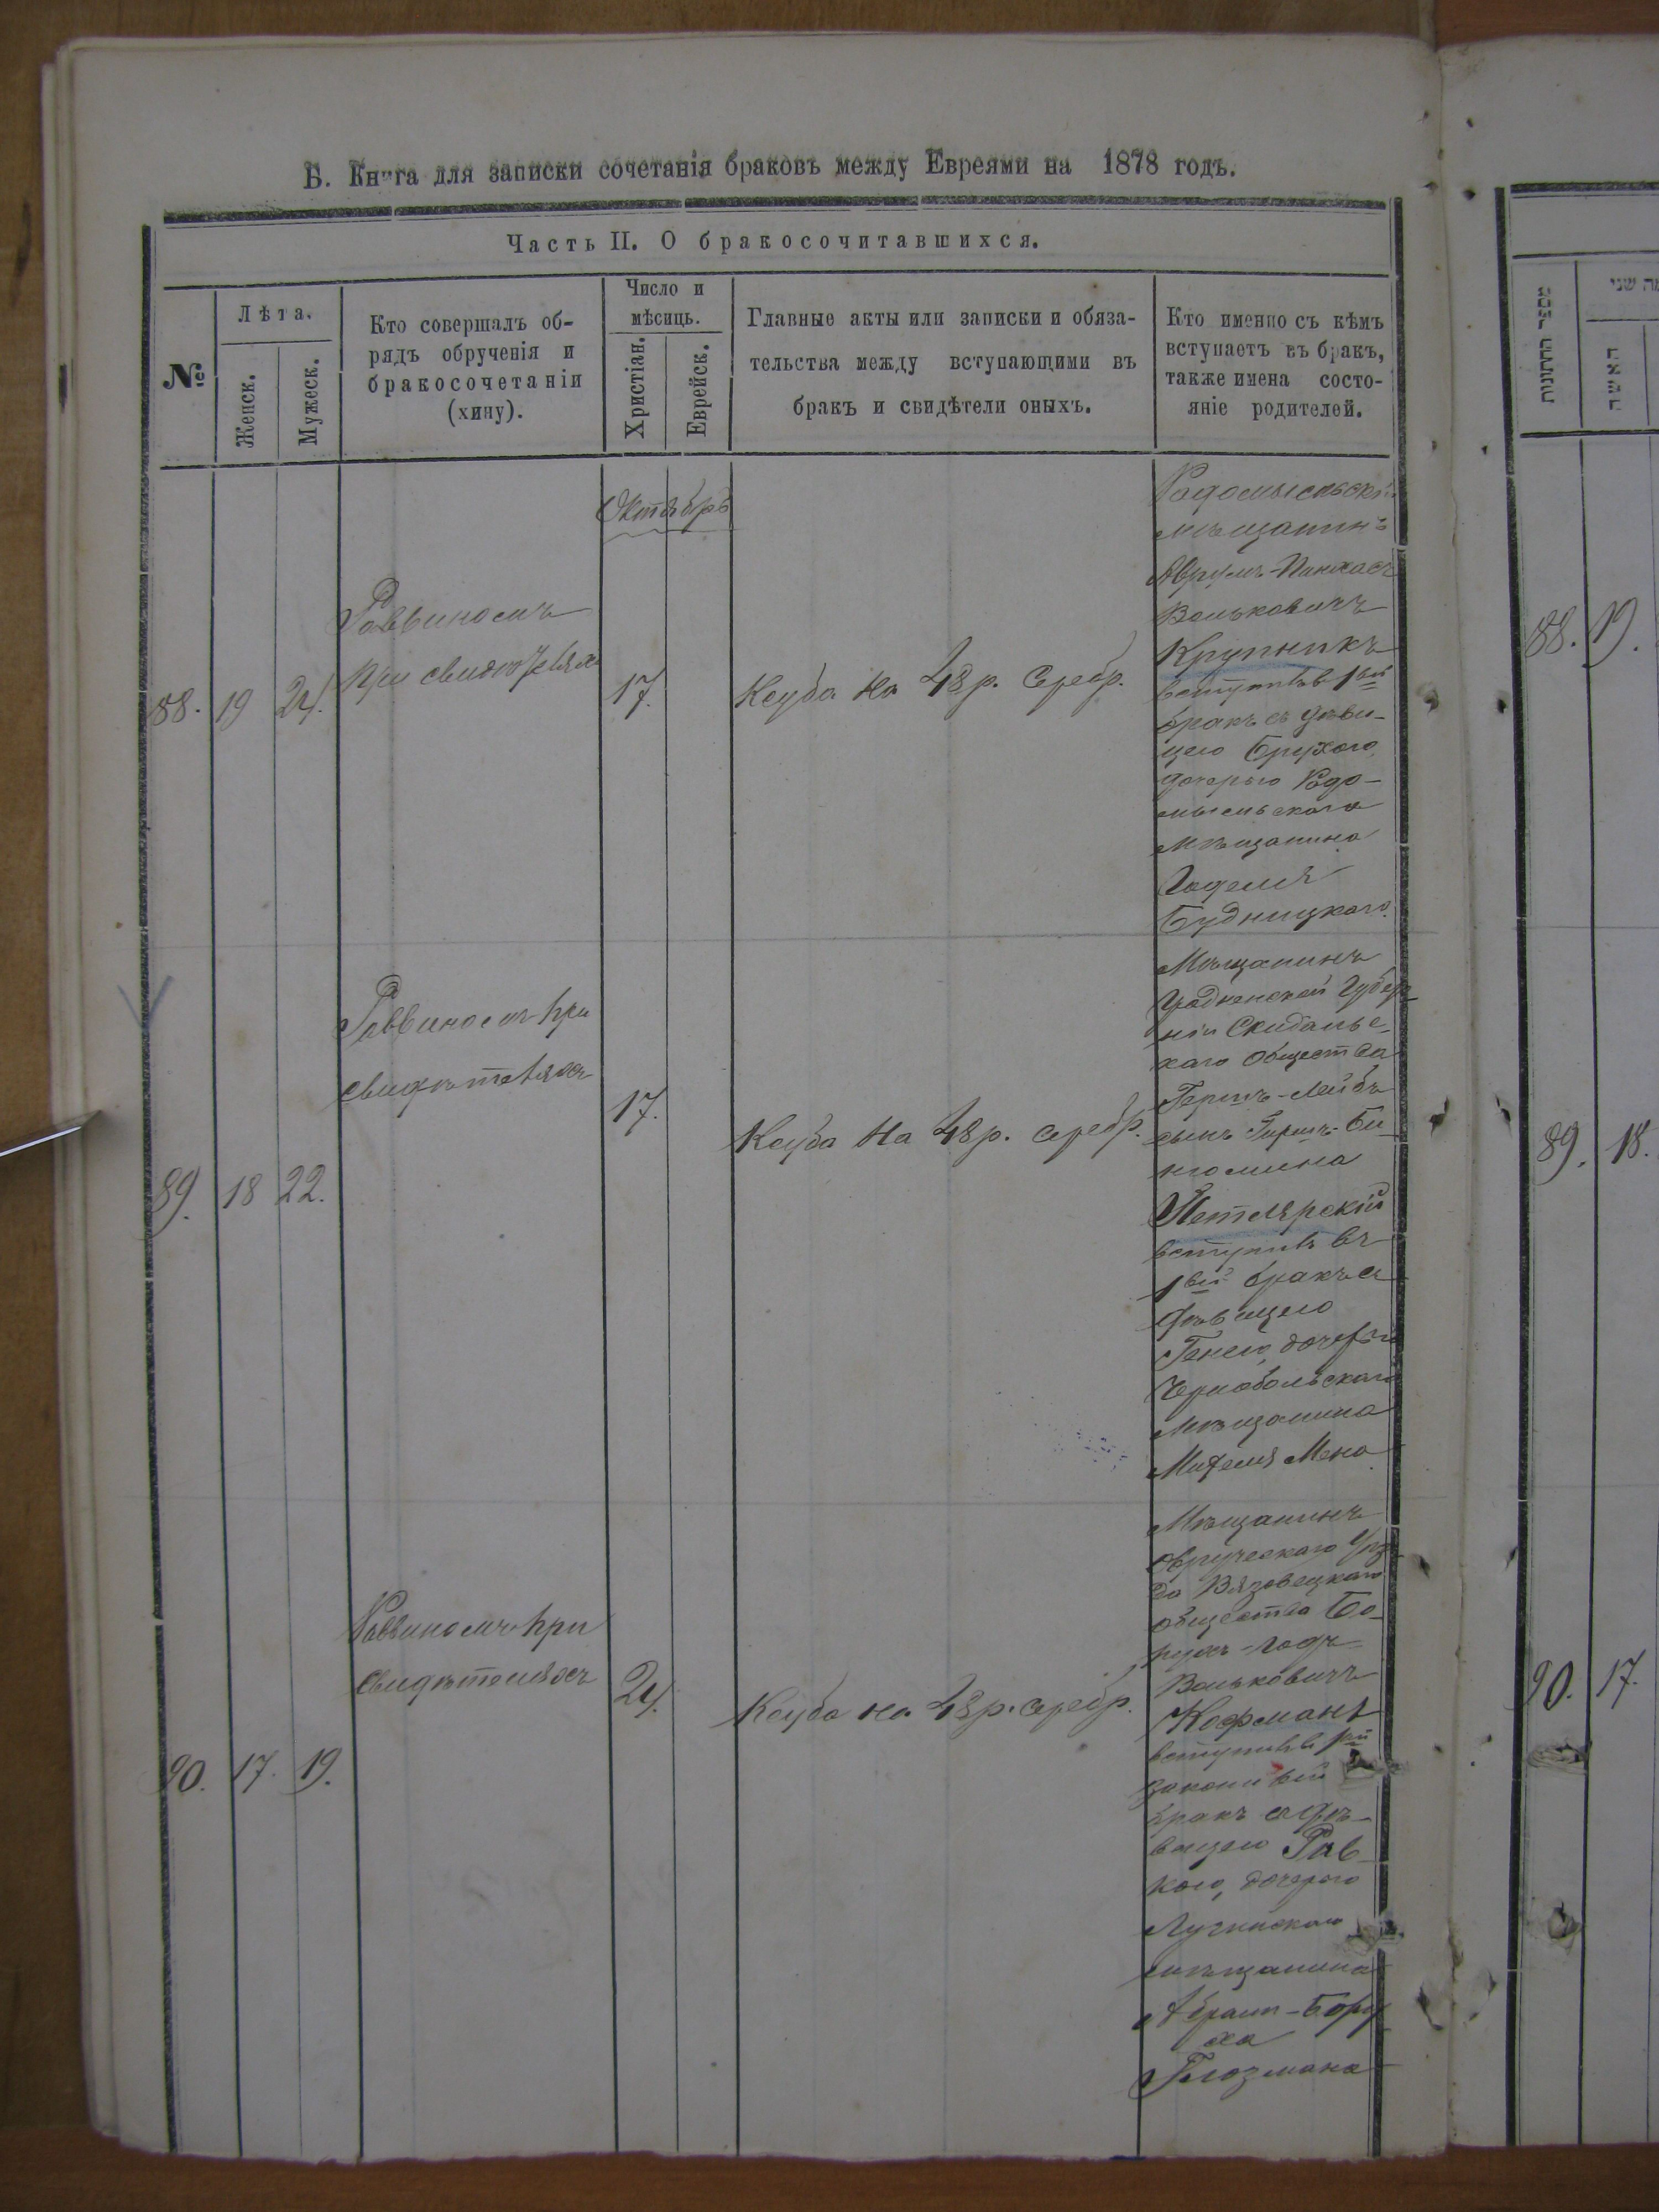 Б. Книга для записки сочетанія браковъ между Евреями на 1878 годъ.
Часть II. О бракосочитавшихся.
№
Лѣта.
Женск.
Мужеск.
Кто совершалъ об-
рядъ обрученія и
бракосочетаніи
(хину).
Число и
мѣсяць.
Христіан.
Еврейск.
Главные акты или записки и обяза-
тельства между вступающими въ
бракъ и свидѣтели оныхъ.
Кто именно съ кѣмъ
вступаетъ въ бракъ,
также имена состо-
яніе родителей.
Октябрь
88.
19
24.
Раввиномъ
при свидѣтеляхъ
17.
Ксуба на 48 р. Серебр.
Радомысльскій
мѣщанинъ
Аврумъ-Пинхасъ
Вольковичъ
Крупникъ
вступилъ в 1вый
бракъ съ дѣви-
цею Брухою,
дочерью Радо-
мысльскаго
мѣщанина
Годеля
Будницкаго.
89.
18
22.
Раввиномъ при
свидѣтеляхъ
17.
Ксуба на 48 р. серебр.
Мѣщанинъ
Гродненской Губер-
ніи Скидальс-
каго общества
Гершъ-Лейбъ
сынъ Гиршъ-Би-
ніомина
Петлярскій
вступилъ въ
1вый бракъ съ
дѣвицею
Генею, дочерью
Чернобольскаго
мѣщанина
90.
17.
19.
Раввиномъ при
свидѣтеляхъ
24.
Ксуба на 48 р. серебр.
Мѣщанинъ
Овручскаго Уѣз-
да
общества Бо-
рухъ-
Вольковичъ
Кофманъ
вступилъ в 1вый
законный
бракъ съ дѣ-
вицею Рив-
кою, дочерью
Лугинскаго
мѣщанина
Абрам-Бору-
ха
Глозмана
מספר החתונות
האשה
88.
19.
89.
18.
90.
17.